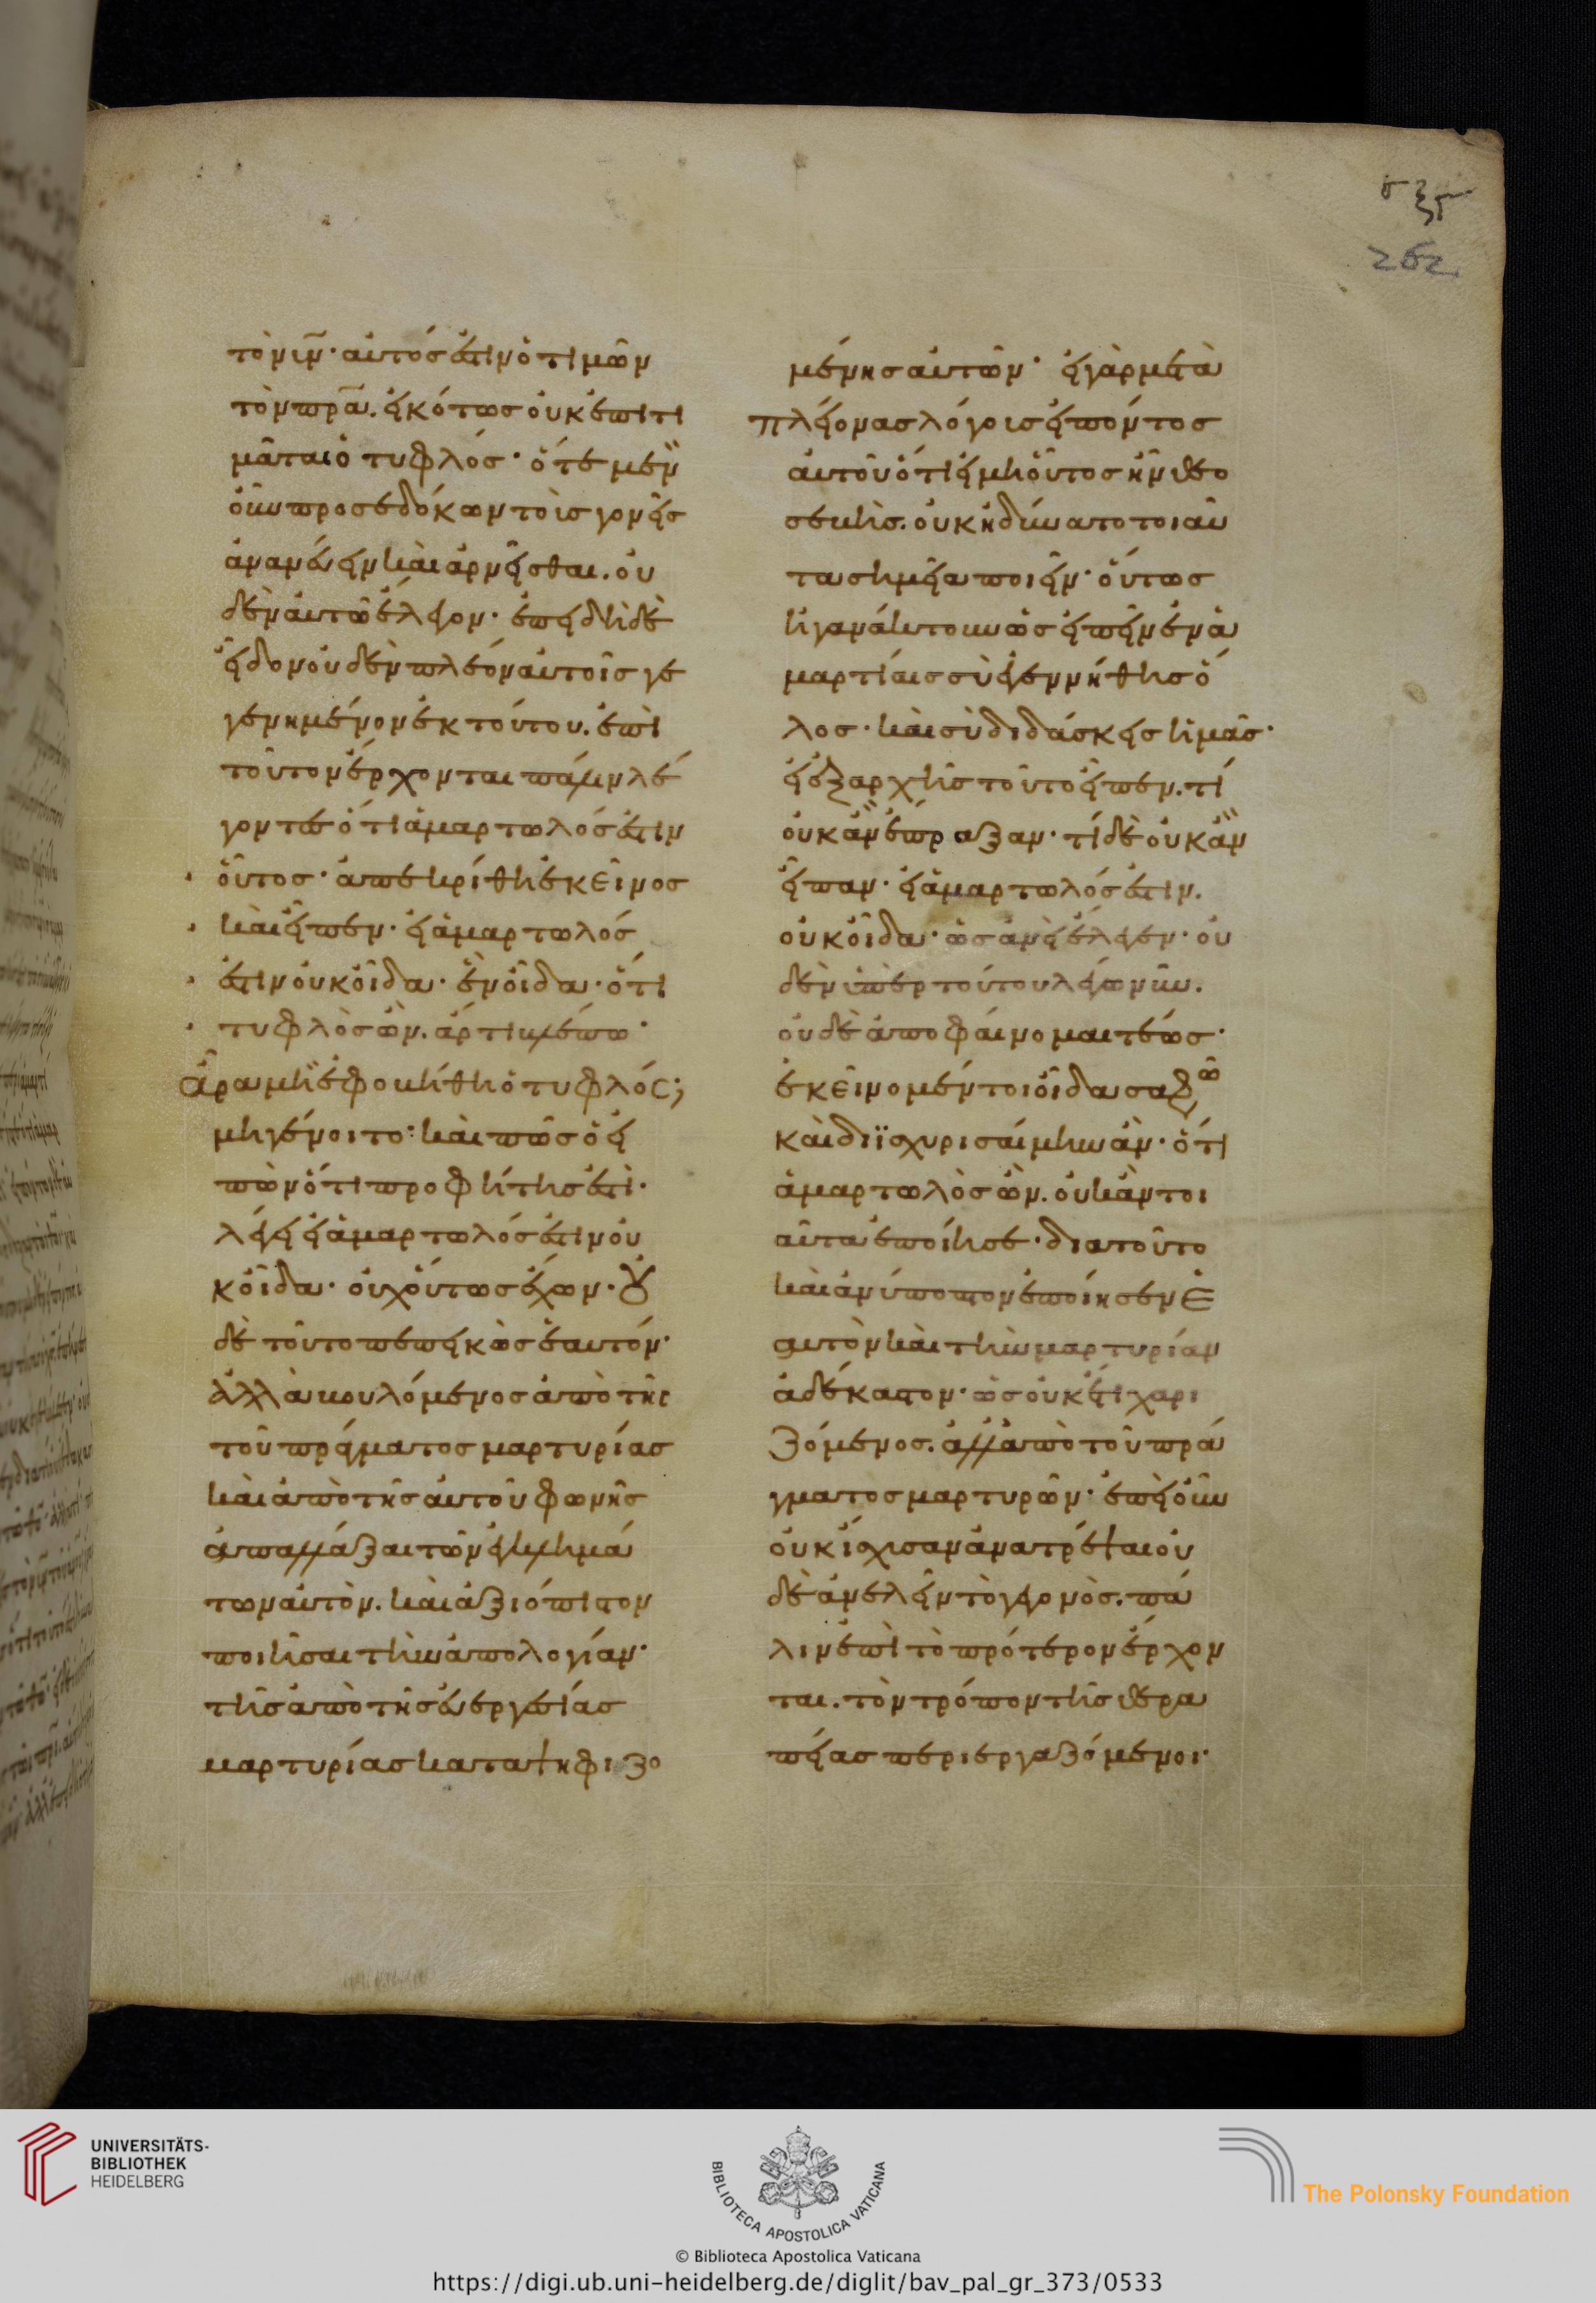 σξς
262
τὸν υἱν· αὐτός ἐστιν ὁ τιμῶν
τὸν πρα. εἰκότως οὐκ ἐπιτι
μᾶται ὁ τυφλός· ὅτε μὲν
οὖν προσεδόκων τοὶς γονεῖς
ἀναμένειν καὶ ἀρνεῖσθαι. οὐ
δὲν αὐτῶ ἔλεγον· ἐπειδὴ δὲ
εἶδον οὐδὲν πλέον αὐτοῖς γε
γενημένον ἐκ τούτου. ἐπὶ
τοῦτον ἔρχονται πάλιν λέ
γοντες ὅτι ἁμαρτωλός ἐστιν
οὗτος· ἀπεκρίθη ἐκεῖνος
καὶ εἶπεν· εἰ ἁμαρτωλός
ἐστιν οὐκ οἶδα· ἓν οἶδα· ὅτι
τυφλὸς ὢν. ἄρτι βλέπω·
ἆρα μὴ ἐφοβήθη ὁ τυφλός;
μὴ γένοιτο· καὶ πῶς ὁ εἰ
πὼν ὅτι προφήτης ἐστὶ.
λέγει εἰ ἁμαρτωλός ἐστιν οὐ
κ οἶδα· οὐχ οὕτως ἔχων· οὐ
δὲ τοῦτο πεπεικὼς ἑαυτόν·
ἀλλὰ βουλόμενος ἀπὸ τῆς
τοῦ πράγματος μαρτυρίας
καὶ ἀπὸ τῆς αὐτοῦ φωνῆς
ἀπαλλάξαι τῶν ἐγκλημά
των αὐτὸν. καὶ ἀξιόπιστον
ποιῆσαι τὴν ἀπολογίαν·
τῆς ἀπὸ τῆς εὐεργεσίας
μαρτυρίας καταψηφιζο
μένης αὐτῶν· εἰ γὰρ μετὰ
πλείονας λόγοις εἰπόντος
αὐτοῦ ὅτι εἰ μὴ οὗτος ἦν θεο
σεβὴς. οὐκ ἠδύνατο τοιαῦ
τα σημεῖα ποιεῖν· οὕτως
ἠγανάκτουν ὡς εἰπεῖν ἐν ἁ
μαρτίαις σὺ ἐγεννήθης ὅ
λος· καὶ σὺ διδάσκεις ἡμᾶς·
εἰ ἐξαρχῆς τοῦτο εἶπεν. τί
οὐκ ἂν ἔπραξαν· τί δὲ οὐκ ἂν
εἶπαν· εἰ ἁμαρτωλός ἐστιν.
οὐκ οἶδα· ὡσανεὶ ἔλεγεν· οὐ
δὲν ὑπὲρ τούτου λέγω νῦν.
οὐδὲ ἀποφαίνομαι τέως·
ἐκεῖνο μέντοι οἶδα σαφῶ
καὶ διϊσχυρισαίμην ἂν· ὅτι
ἁμαρτωλὸς ὢν. οὐκ ἂν τοι
αῦτα ἐποίησε· διὰ τοῦτο
καὶ ἀνύποπτον ἐποίησεν ἑ
αυτὸν καὶ τὴν μαρτυρίαν
ἀδέκαστον· ὡς οὐκ ἔτι χαρι
ζόμενος. ἀλλ' ἀπὸ τοῦ πρά
γματος μαρτυρῶν· ἐπεὶ οὖν
οὐκ ἴσχυσαν ἀνατρέψαι οὐ
δὲ ἀνελεῖν τὸ γεγονὸς. πά
λιν ἐπὶ τὸ πρότερον ἔρχον
ται. τὸν τρόπον τῆς θερα
πείας περιεργαζόμενοι·
UNIVERSITÄTS-
BIBLIOTHEK
HEIDELBERG
BIBLIOTECA APOSTOLICA VATICANA
The Polonsky Foundation
© Biblioteca Apostolica Vaticana
https://digi.ub.uni-heidelberg.de/diglit/bav_pal_gr_373/0533